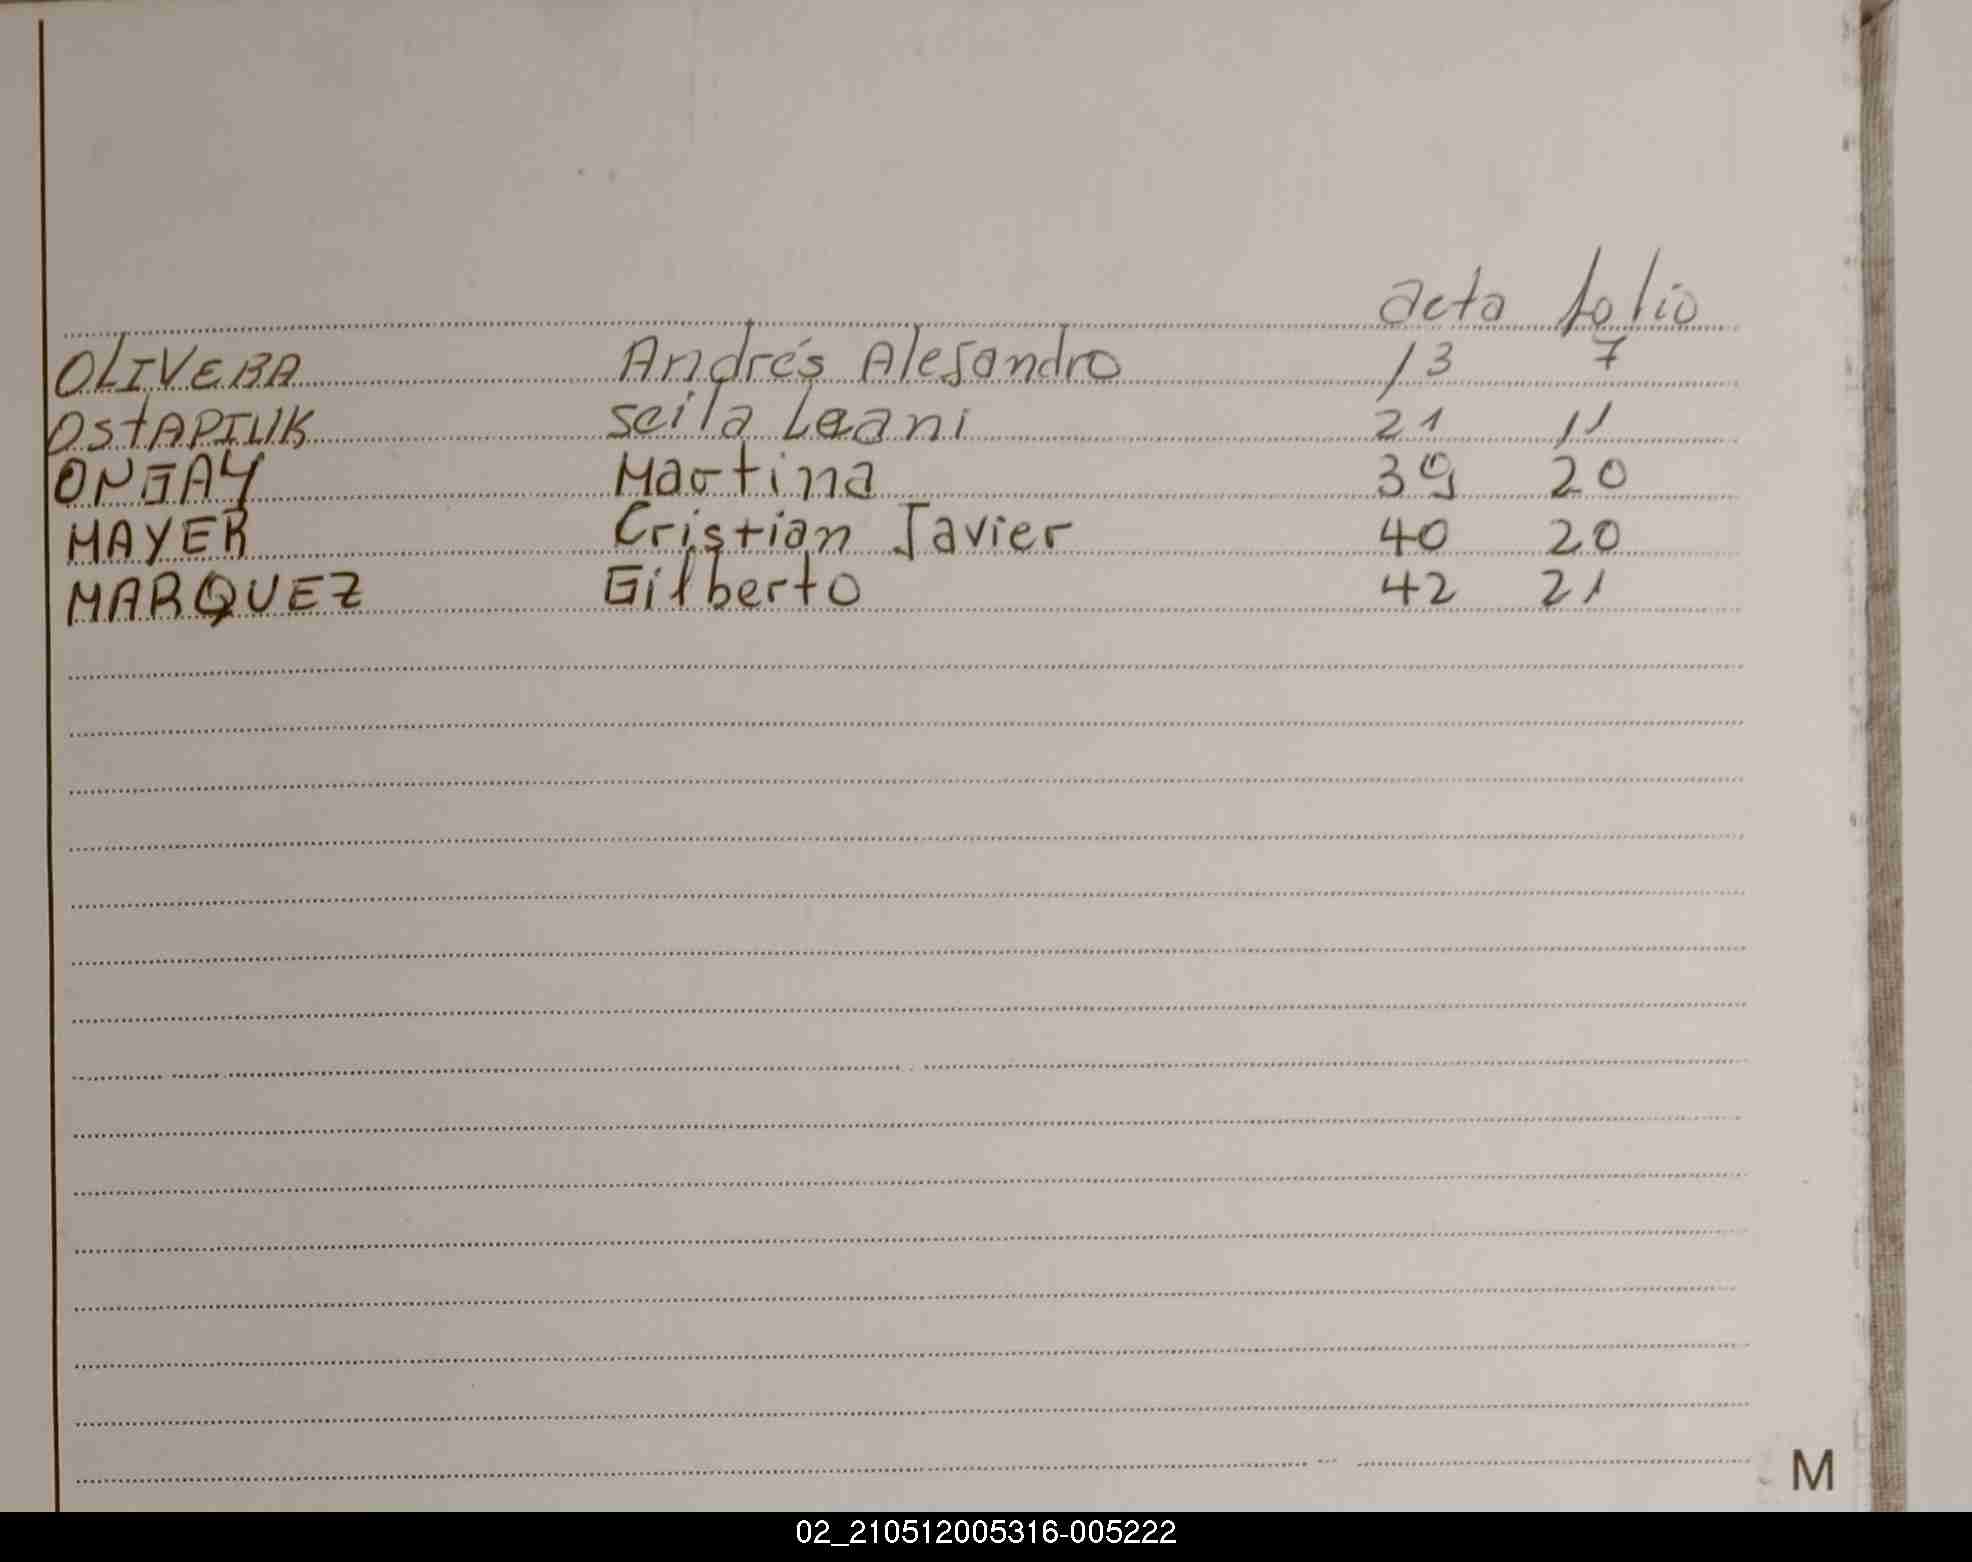 acta folio
OLIVERA Andrés Alejandro 13 7
OstAPIUK Seila Leani 21 11
ONGAY Martina 39 20
MAYER Cristian Javier 40 20
MARQUEZ Gilberto 42 21
M
02_210512005316-005222